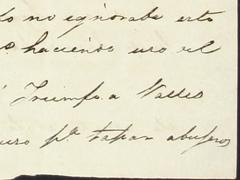 lo no ignoraba esto
haciendo uso el
Triunfo a Valles
uso pª tapar abusos